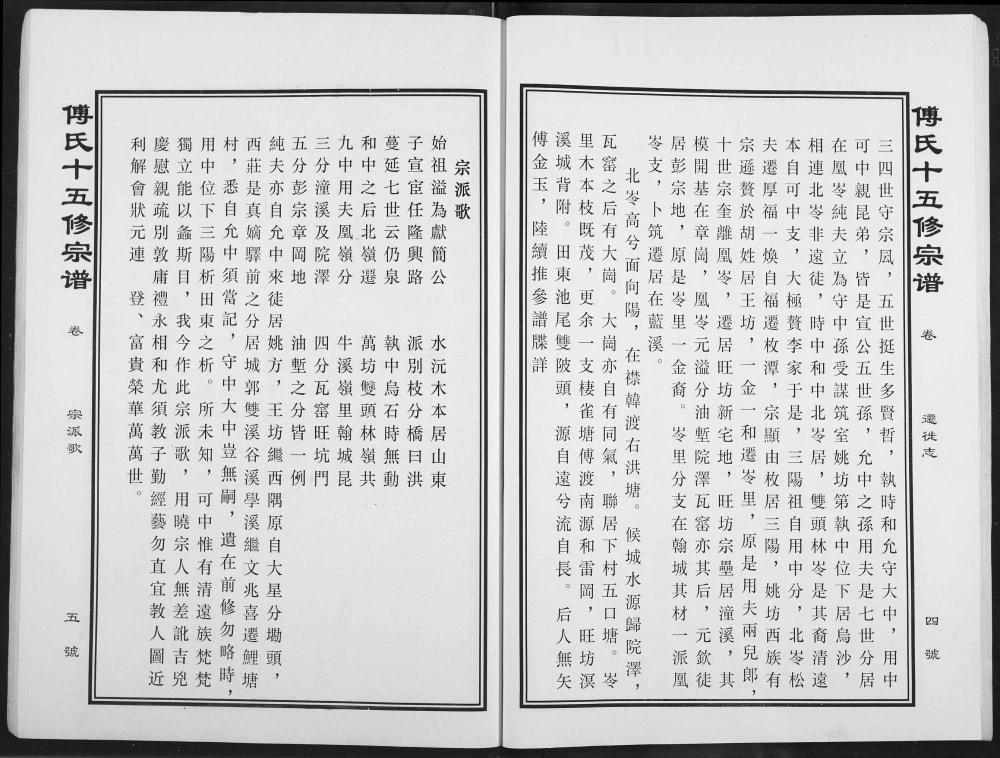 傅氏十五修宗谱
卷
遷徙志
四號
三四世守宗凨，五世挺生多賢哲，執時和允守大中，用中
可中親昆弟，皆是宣公五世孫，允中之孫用夫是七世分居
在凰岑純夫立為守中孫受謀筑室姚坊第執中位下居烏沙，
相連北岑非遠徒，時中和中北岑居，雙頭林岑是其裔清遠
本自可中支，大極贅李家于是，三陽祖自用中分，北岑松
夫遷厚福一煥自福遷枚潭，宗顯由枚居三陽，姚坊西族有
宗遜贅於胡姓居王坊，一金一和遷岑里，原是用夫兩兒郎，
十世宗奎離凰岑，遷居旺坊新宅地，旺坊宗壘居潼溪，其
模開基在章崗，凰岑元溢分油塹院澤瓦窑亦其后，元欽徒
居彭宗地，原是岑里一金裔。岑里分支在翰城其材一派凰
岑支，卜筑遷居在藍溪。
北岑高兮面向陽，在襟韓渡右洪塘。候城水源歸院澤，
瓦窑之后有大崗。大崗亦自有同氣，聯居下村五口塘。岑
里木本枝既茂，更余一支棲雀塘傅渡南源和雷岡，旺坊溟
溪城背附。田東池尾雙陂頭，源自遠兮流自長。后人無矢
傅金玉，陸續推參譜牒詳
宗派歌
始祖溢為獻簡公 水沅木本居山東
子宣宦任任隆興路 派別枝分橋曰洪
蔓延七世云仍泉 執中烏石時無動
和中之后北嶺遷 萬坊雙頭林嶺共
九中用夫凰嶺分 牛溪嶺里翰城昆
三分潼溪及院澤 四分瓦窑旺坑門
五分彭宗章岡地 油塹之分皆一例
純夫亦自允中來徒居姚方，王坊繼西隅原自大星分塘頭，
西莊是真嫡驛前之分居城郭雙溪谷溪學溪繼文兆喜遷鯉塘
村，悉自允中須當記，守中大中豈無嗣，遺在前修勿略時，
用中位下三陽析田東之析。所未知，可中惟有清遠族梵梵
獨立能以螽斯目，我今作此宗派歌，用曉宗人無差訛吉兇
慶慰親疏別敦庸禮永相和尤須教子勤經藝勿直宜教人圖近
利解會狀元連 登、富貴榮華萬萬世。
傅氏十五修宗谱
卷
宗派歌
五號